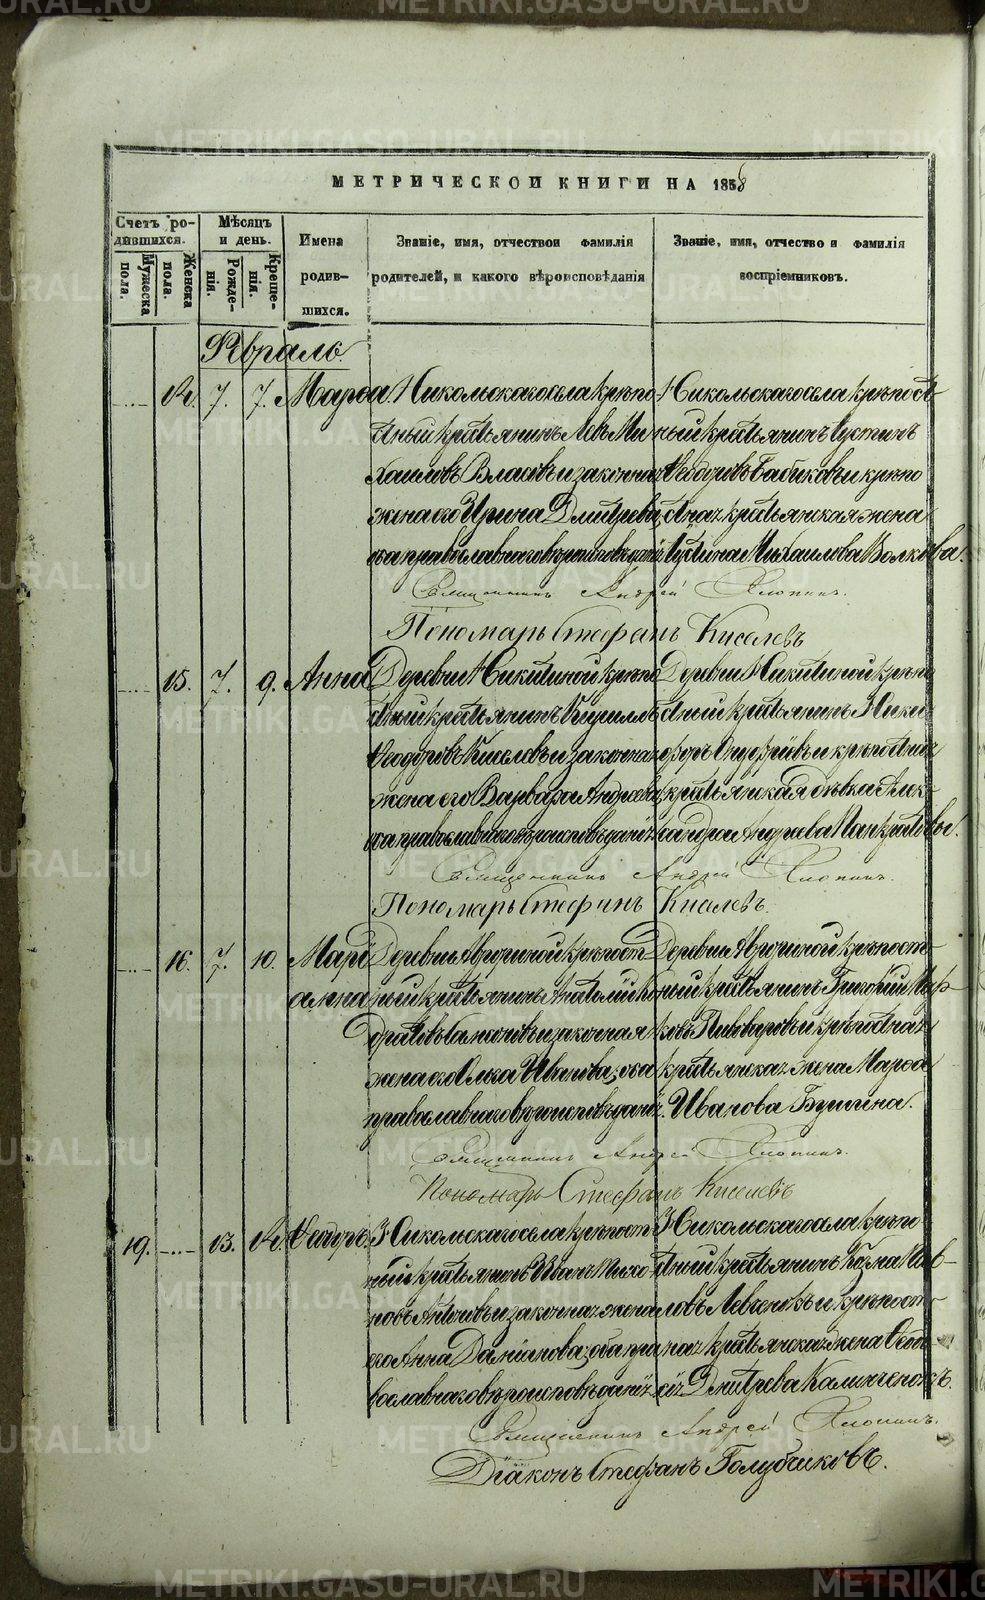 METRIKI.GASO-URAL.RU
МЕТРИЧЕСКОЙ КНИГИ НА 1858
Счетъ ро-
дившихся.
Мужеска пола.
Женска пола.
Мѣсяцъ
и день.
Рожде-
нія.
Креще-
нія.
Имена
родив-
шихся.
Званіе, имя, отчествои фамилія
родителей, и какого вѣроисповѣданія
Званіе, имя, отчество и фамилія
воспріемниковъ.
Февраль.
14. 7. 7. Марѳа.
Никольскаго села крѣпо
стный крестьянинъ Левъ Ми
хаиловъ Власовъ и законная
жена его Ирина Дмитрева,
оба православнаго вѣроисповѣданія
Никольскаго села крѣпост
ный крестьянинъ Іустинъ
Ѳеодоровъ Бабиковъ и крѣпо
стная крестьянская жена
Іустина Михаилова Волкова.
Священникъ Андрей Хлопинъ.
Пономарь Стефанъ Киселевъ
15. 7. 9. Анна
Деревни Никитиной крѣпо
стный крестьянинъ Кириллъ
Ѳеодоровъ Киселевъ и законная
жена его Варвара Андреева,
оба православнаго вѣроисповѣданія
Деревни Никитиной крѣпо
стный крестьянинъ Ники
форъ Онуфріевъ и крѣпостная
крестьянская дѣвка Алек
сандра Андреева Панкратовы.
Священникъ Андрей Хлопинъ.
Пономарь Стефанъ Киселевъ.
16. 7. 10. Марі
амна
Деревни крѣпост
ный крестьянинъ
и законная
жена его Ольга Иванова, оба
православнаго вѣроисповѣданія.
Деревни крѣпост-
ный крестьянинъ Григорій Мар-
ковъ Пивоваровъ и крѣпостная
крестьянская жена Марѳа
Иванова Бушина.
Священникъ Андрей Хлопинъ.
Пономарь Стефанъ Киселевъ
19. 13. 14. Ѳеодоръ.
Никольскаго села крѣпост
ный крестьянинъ Иванъ Тихо
новъ Антоновъ и законная жена
его Анна Даніилова, оба пра
вославнаго вѣроисповѣданія
Никольскаго села крѣпо
стный крестьянинъ Козма Пав-
ловъ Левченокъ и крѣпост-
ная крестьянская жена Ѳеодо-
сія Дмитрева Калинченокъ.
Священникъ Андрей Хлопинъ.
Діаконъ Стефанъ Голубчиковъ.